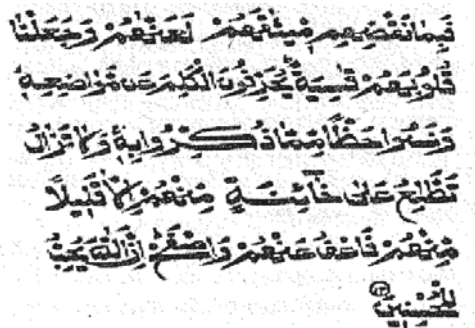 فَبِمَا نَقْضِهِم مِّيثَٰقَهُمْ لَعَنَّٰهُمْ وَجَعَلْنَا
قُلُوبَهُمْ قَٰسِيَةً يُحَرِّفُونَ الْكَلِمَ عَن مَّوَاضِعِهِ
وَنَسُوا حَظًّا مِّمَّا ذُكِّرُوا بِهِ وَلَا تَزَالُ
تَطَّلِعُ عَلَىٰ خَآئِنَةٍ مِّنْهُمْ إِلَّا قَلِيلًا
مِّنْهُمْ فَاعْفُ عَنْهُمْ وَاصْفَحْ إِنَّ اللَّهَ يُحِبُّ
الْمُحْسِنِينَ ١٣